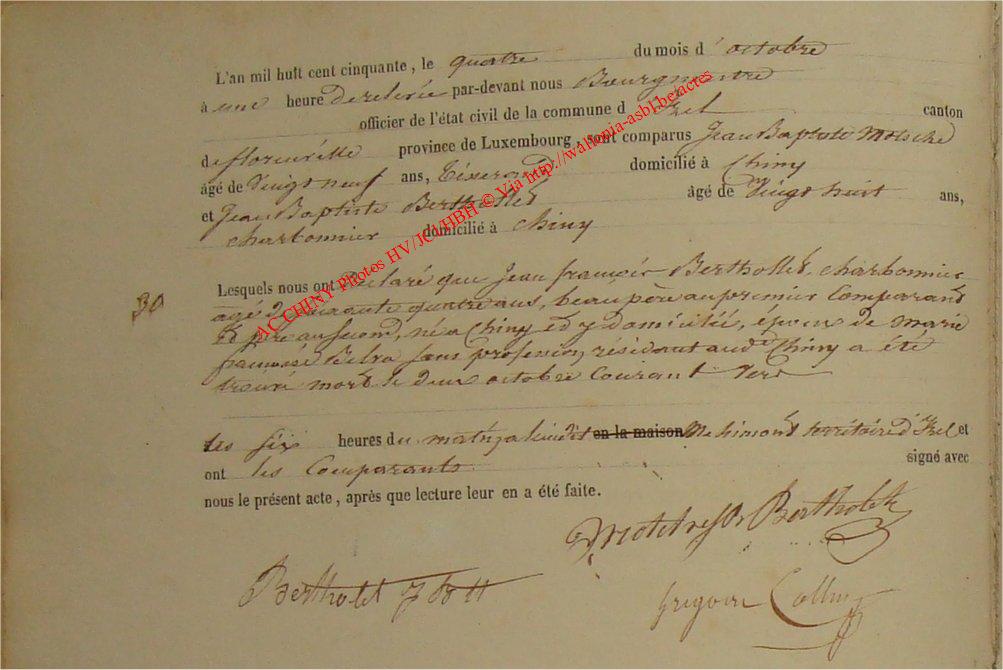 L'an mil huit cent cinquante, le quatre du mois d'octobre
à une heure de relevée par-devant nous Bourgmestre
officier de l'état civil de la commune d'Izel canton
de florenville province de Luxembourg, sont comparus Jean Baptiste
âgé de Vingt neuf ans, domicilié à Chiny
et Jean Baptiste Berthollet âgé de Vingt huit ans,
charbonnier domicilié à Chiny
30
Lesquels nous ont déclaré que Jean françois Berthollet, charbonnier
agé de quatre ans, beau père au premier Comparant
et père au second, né a Chiny et y domicilié, epoux de marie
françoise sans profession, résidant aud Chiny a été
trouvé mort le deux octobre Courant Vers
les six heures du matin, au lieu dit en la maison territoire d'Izel et
ont les Comparants signé avec
nous le présent acte, après que lecture leur en a été faite.
Bertholet
Bertholet J Btt
Grégoire Collin
AC CHINY Photos HV/JCVHBH © Via http://wallonia-asbl.be/actes